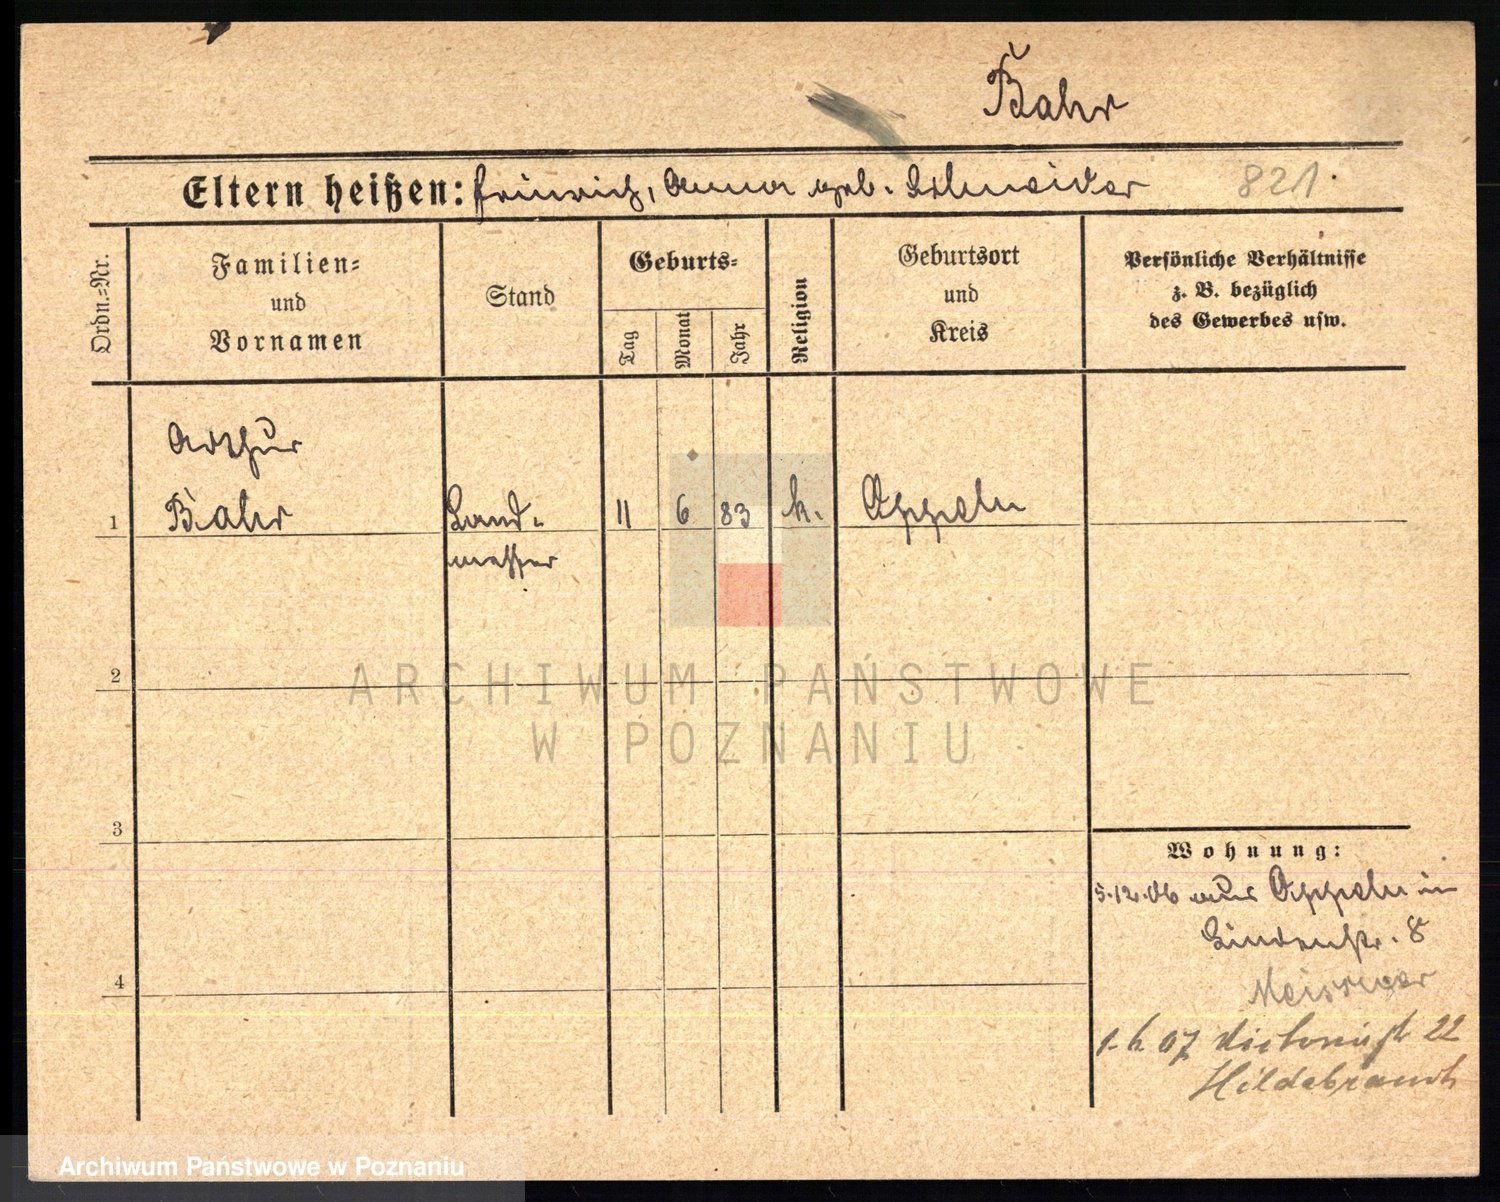 Bahr
Eltern heißen: Heinrich, Anna geb. Schneider 821.
Ordn.=Nr.
Familien=
und
Vornamen
Stand
Geburts=
Tag
Monat
Jahr
Religion
Geburtsort
und
Kreis
Persönliche Verhältnisse
z. B. bezüglich
des Gewerbes usw.
Arthur
1 Bahr Land- 11 6 83 k. Oppeln
messer
2
ARCHIWUM PAŃSTWOWE
W POZNANIU
3
Wohnung:
5.12.06 aus Oppeln in
Lindenstr. 8
4
Meissner
07 Victoriastr 22
Hildebrandt
Archiwum Państwowe w Poznaniu